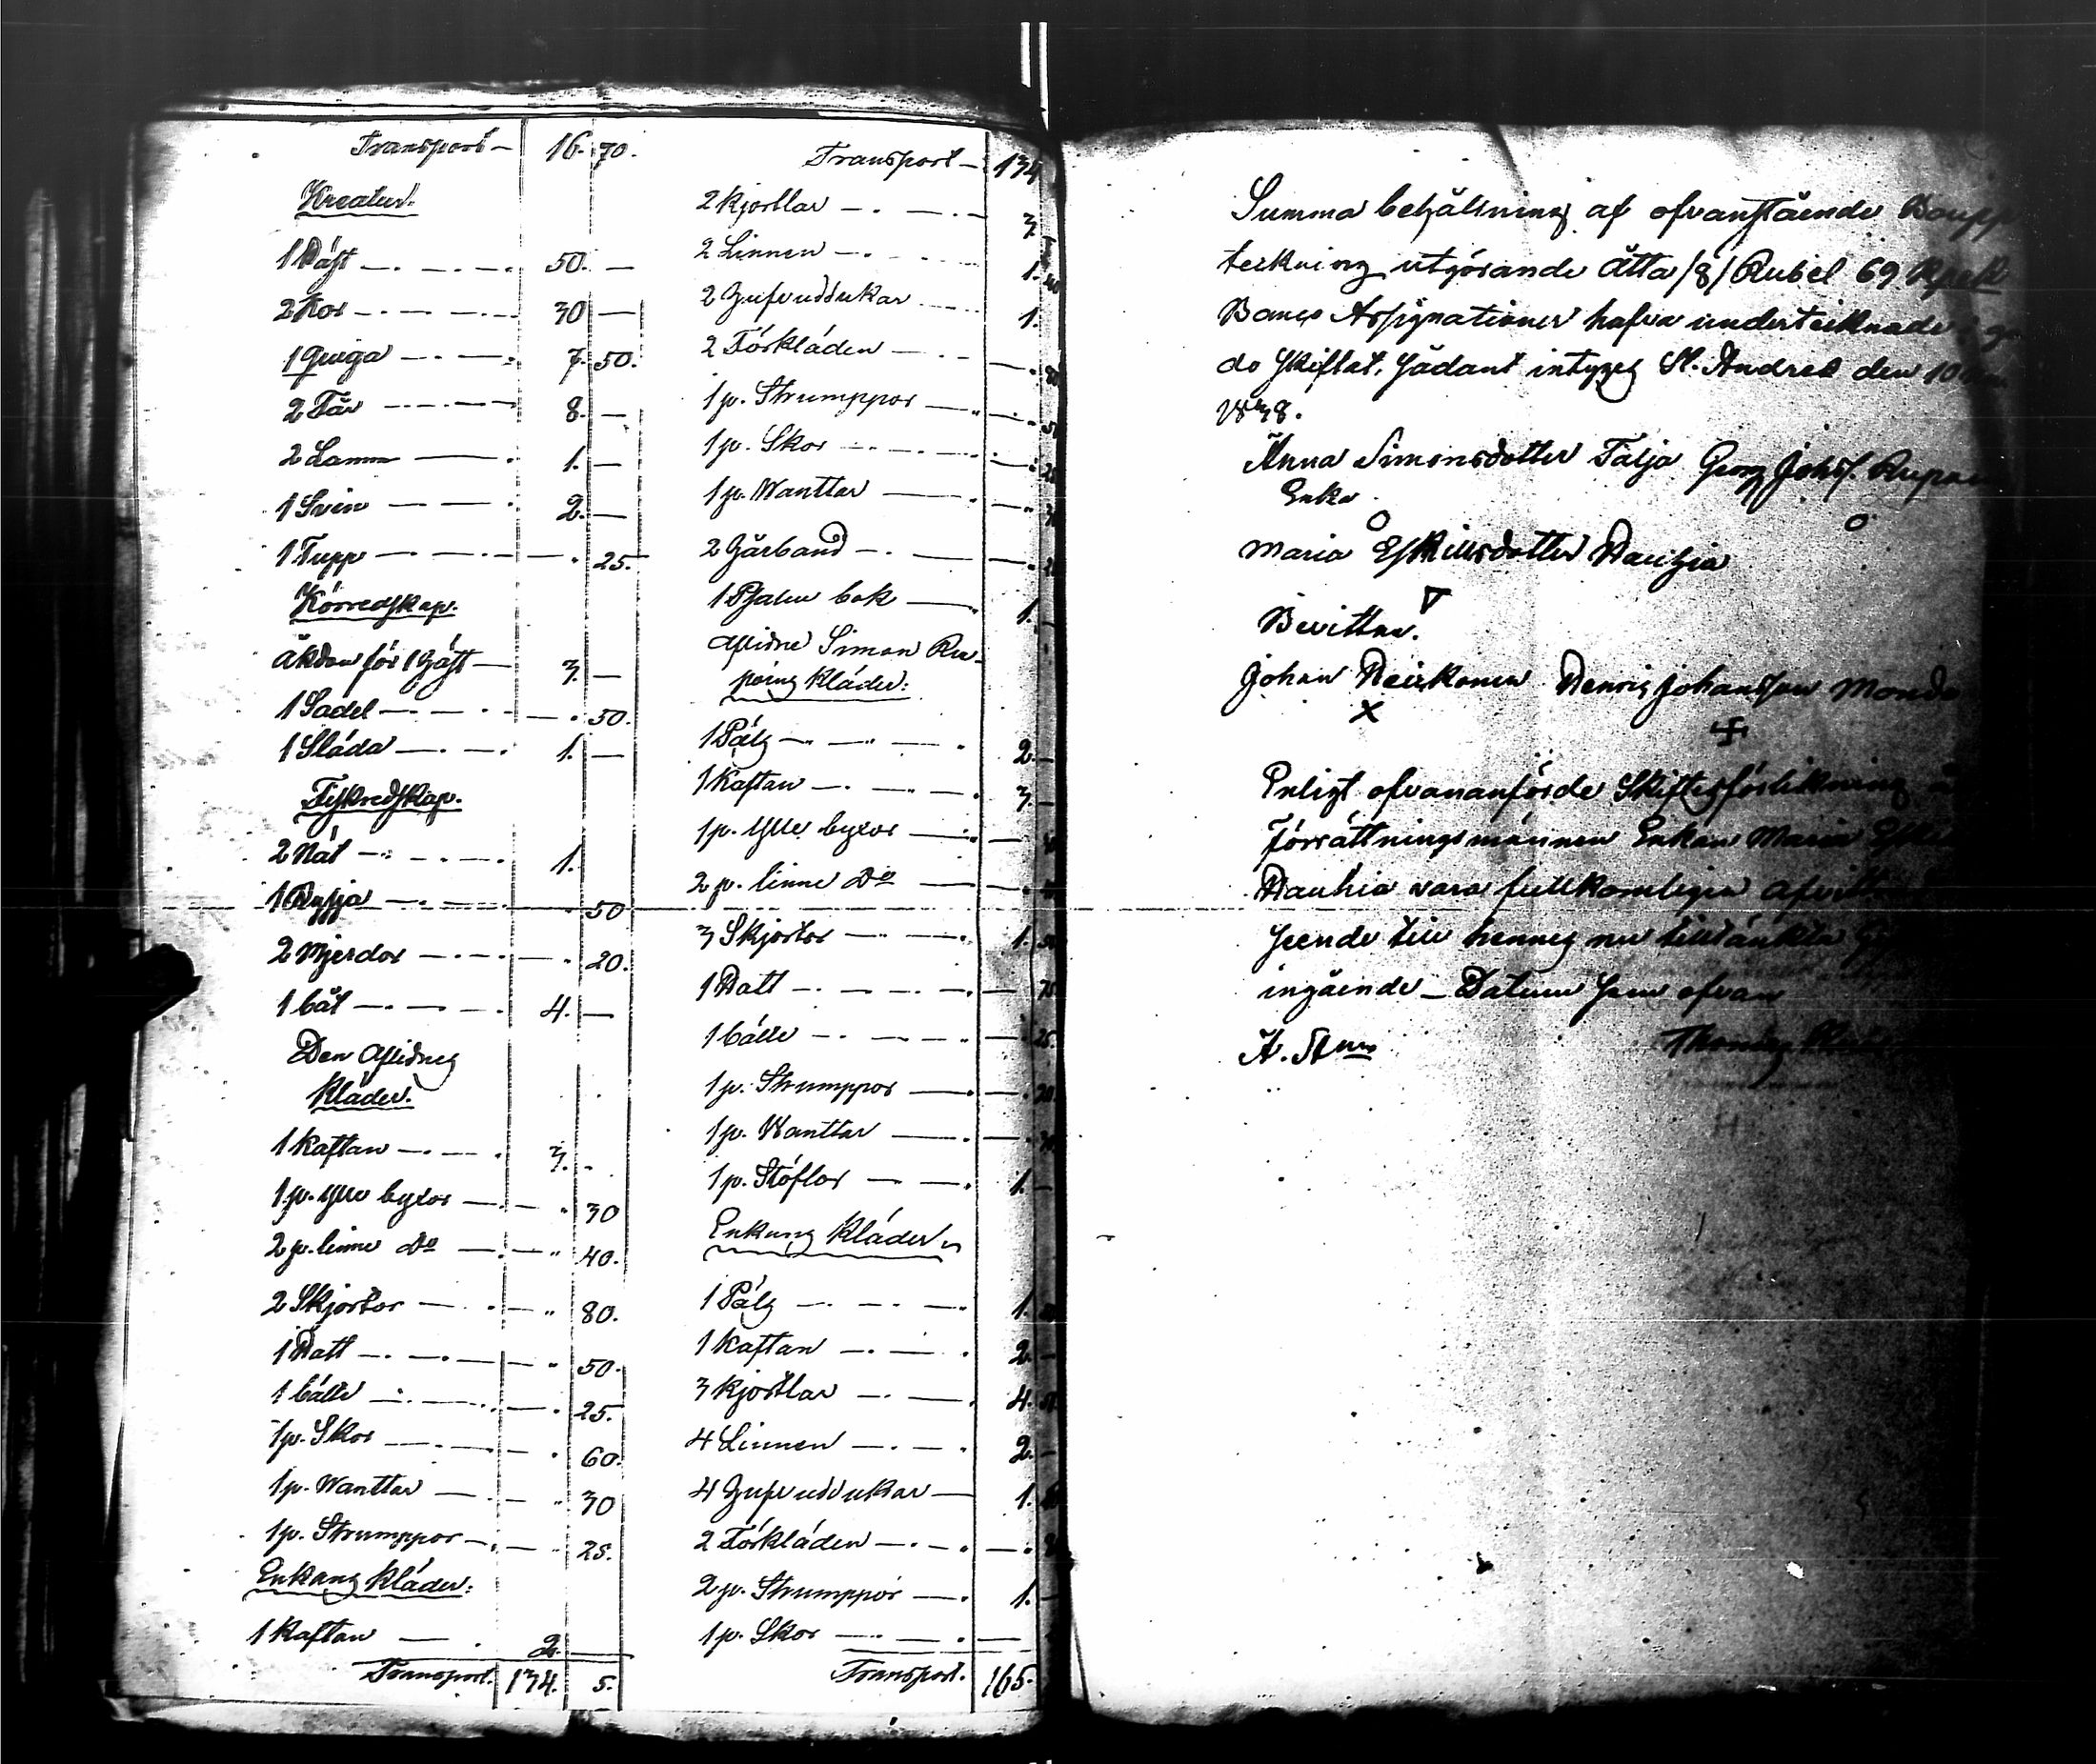 Transport — 16. 70.
Kreatur.
1 Häst — 50. —
2 Kor — 30 —
1 Qviga — 7. 50.
2 Får — 8. —
2 Lamm — 1. —
1 Svin — 2. —
1 Tupp — 25.
Körredskap.
Åkdon för 1 häst — 3. —
1 Sadel — 50.
1 Släda — 1. —
Fiskredskap.
2 Nät — 1.
1 Ryssja — 50
2 Mjerdor — 20.
1 båt — 4. —
Den Aflidnes
kläder.
1 Kaftan — 3. -
1 p. ylle byxor — 30
2 p. linne Do — 40.
2 Skjortor — 80.
1 Hatt — 50.
1 bälte — 25.
1 p. Skor — 60.
1 p. Wanttar — 30
1 p. Strumppor — 25.
Enkans kläder.
1 Kaftan — 2. —
Transport. 134. 5.
Transport — 134
2 kjortlar — 3.
2 Linnen — 1.
2 Hufvuddukar — 1.
2 Förkläden —
1 p. Strumppor —
1 p. Skor —
1 p. Wanttar —
2 Hårband —
1 Psalm bok — 1.
Aflidne Simon Ru-
poins kläder:
1 Pälz — 2. —
1 Kaftan — 3. —
1 p. ylle byxor —
2 p. linne Do —
3 Skjortor — 1.
1 Hatt — 75
1 bälte — 25.
1 p. Strumppor — 20.
1 p. Wanttar —
1 p. Stöflor — 1. —
Enkans kläder
1 Pälz — 1.
1 Kaftan — 2. —
3 kjortlar — 4. 50
4 Linnen — 2. —
4 Hufvuddukar — 1.
2 Förkläden —
2 p. Strumppor — 1. —
1 p. Skor —
Transport. 165.
Summa behållning af ofvanstående Boupp
teckning utgörande Åtta /8/ Rubel 69 Kpek
Banco Assignationer hafva undertecknade
do skiftat, Sådant intygas St. Andreæ den 10
1838.
Anna Simonsdotter Talja Georg Johs. Rupoin
Enka
Maria Eskilsdotter Hauhia
Bevittna.
Johan Heikonen Henric Johansson Monda
X
Enligt ofvananförde Skiftesförlikning
Förrättningsmännen Enkan Maria
Hauhia vara fullkomligen
seende till hennes nu tilltänkta
ingående — Datum som ofvan
A. Thomas